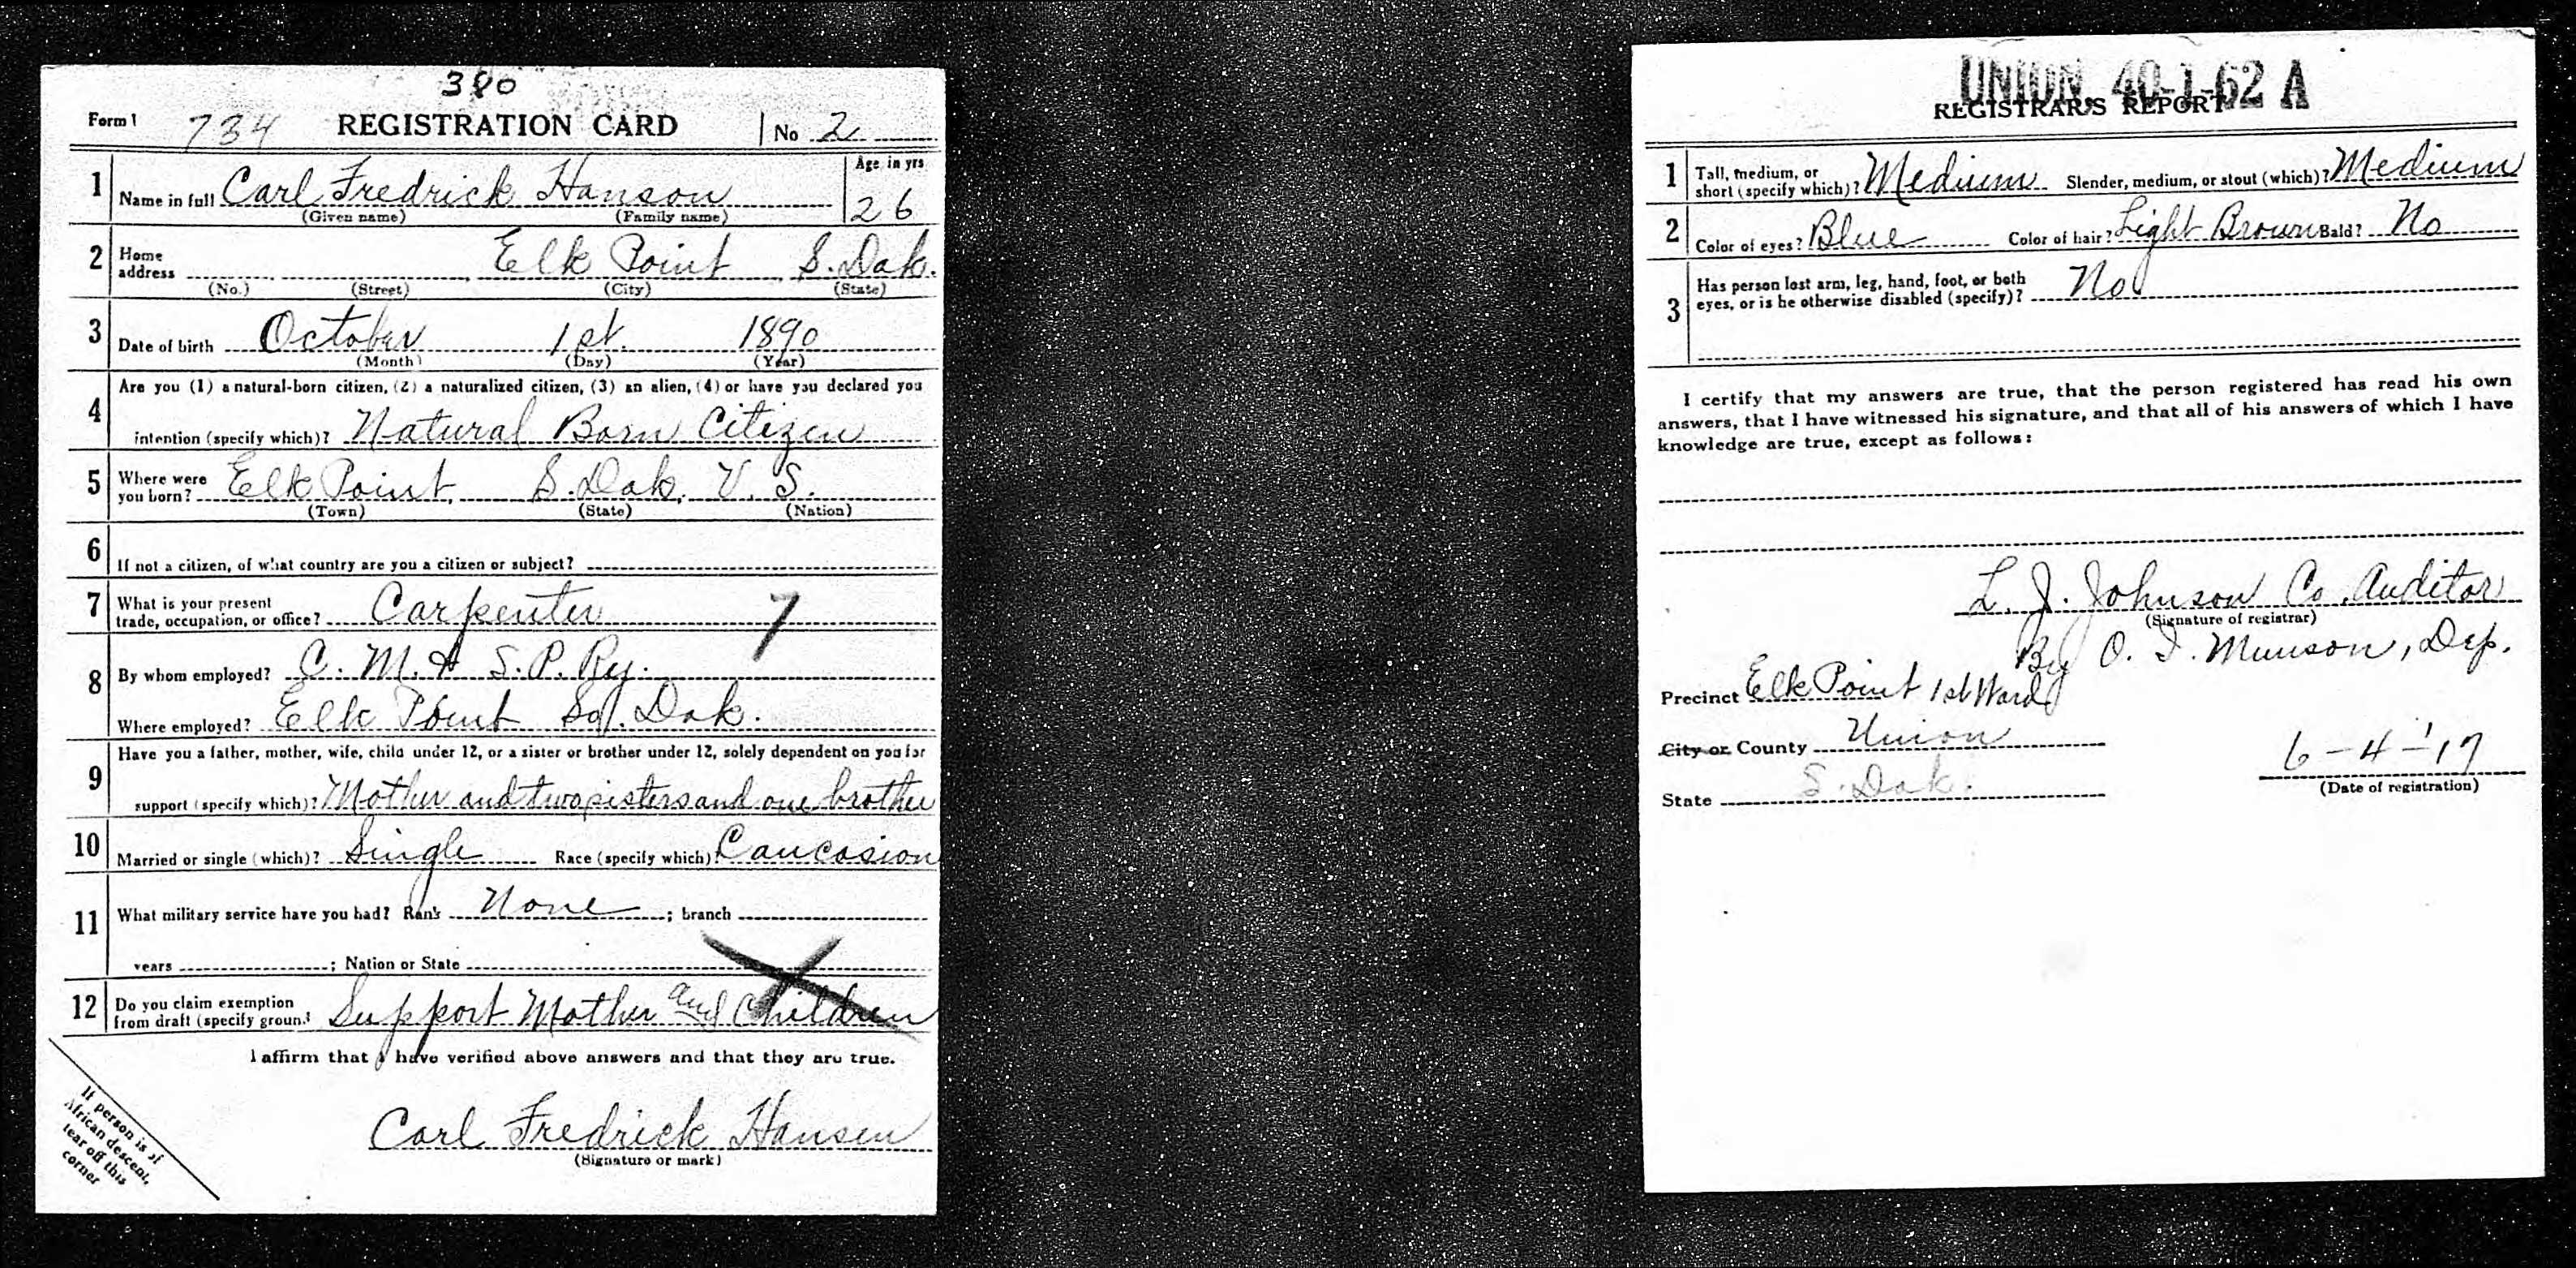 380
Form 1 734 REGISTRATION CARD No 2
1 Name in full Carl Fredrick Hanson Age in yrs 26
(Given name) (Family name)
2 Home address Elk Point S. Dak.
(No.) (Street) (City) (State)
3 Date of birth October 1st. 1890
(Month) (Day) (Year)
4 Are you (1) a natural-born citizen, (2) a naturalized citizen, (3) an alien, (4) or have you declared you
intention (specify which)? Natural Born Citizen
5 Where were you born? Elk Point, S. Dak. U. S.
(Town) (State) (Nation)
6 If not a citizen, of what country are you a citizen or subject?
7 What is your present trade, occupation, or office? Carpenter 7
8 By whom employed? C. M. & S. P. Ry.
Where employed? Elk Point So. Dak.
9 Have you a father, mother, wife, child under 12, or a sister or brother under 12, solely dependent on you for
support (specify which)? Mother and two sisters and one brother
10 Married or single (which)? Single Race (specify which)? Caucasion
11 What military service have you had? Rank None ; branch
years ; Nation or State
12 Do you claim exemption from draft (specify grounds Support Mother and Children
I affirm that I have verified above answers and that they are true.
Carl Fredrick Hansen
(Signature or mark)
If person is of
African descent,
tear off this
corner
UNION, 40-1-62 A
REGISTRAR'S REPORT
1 Tall, medium, or short (specify which)? Medium Slender, medium, or stout (which)? Medium
2 Color of eyes? Blue Color of hair? Light Brown Bald? No
3 Has person lost arm, leg, hand, foot, or both
eyes, or is he otherwise disabled (specify)? No
I certify that my answers are true, that the person registered has read his own
answers, that I have witnessed his signature, and that all of his answers of which I have
knowledge are true, except as follows:
L. J. Johnson Co. Auditor
(Signature of registrar)
By O. I. Munson, Dep.
Precinct Elk Point 1st Ward
City or County Union
State S. Dak.
6-4-'17
(Date of registration)